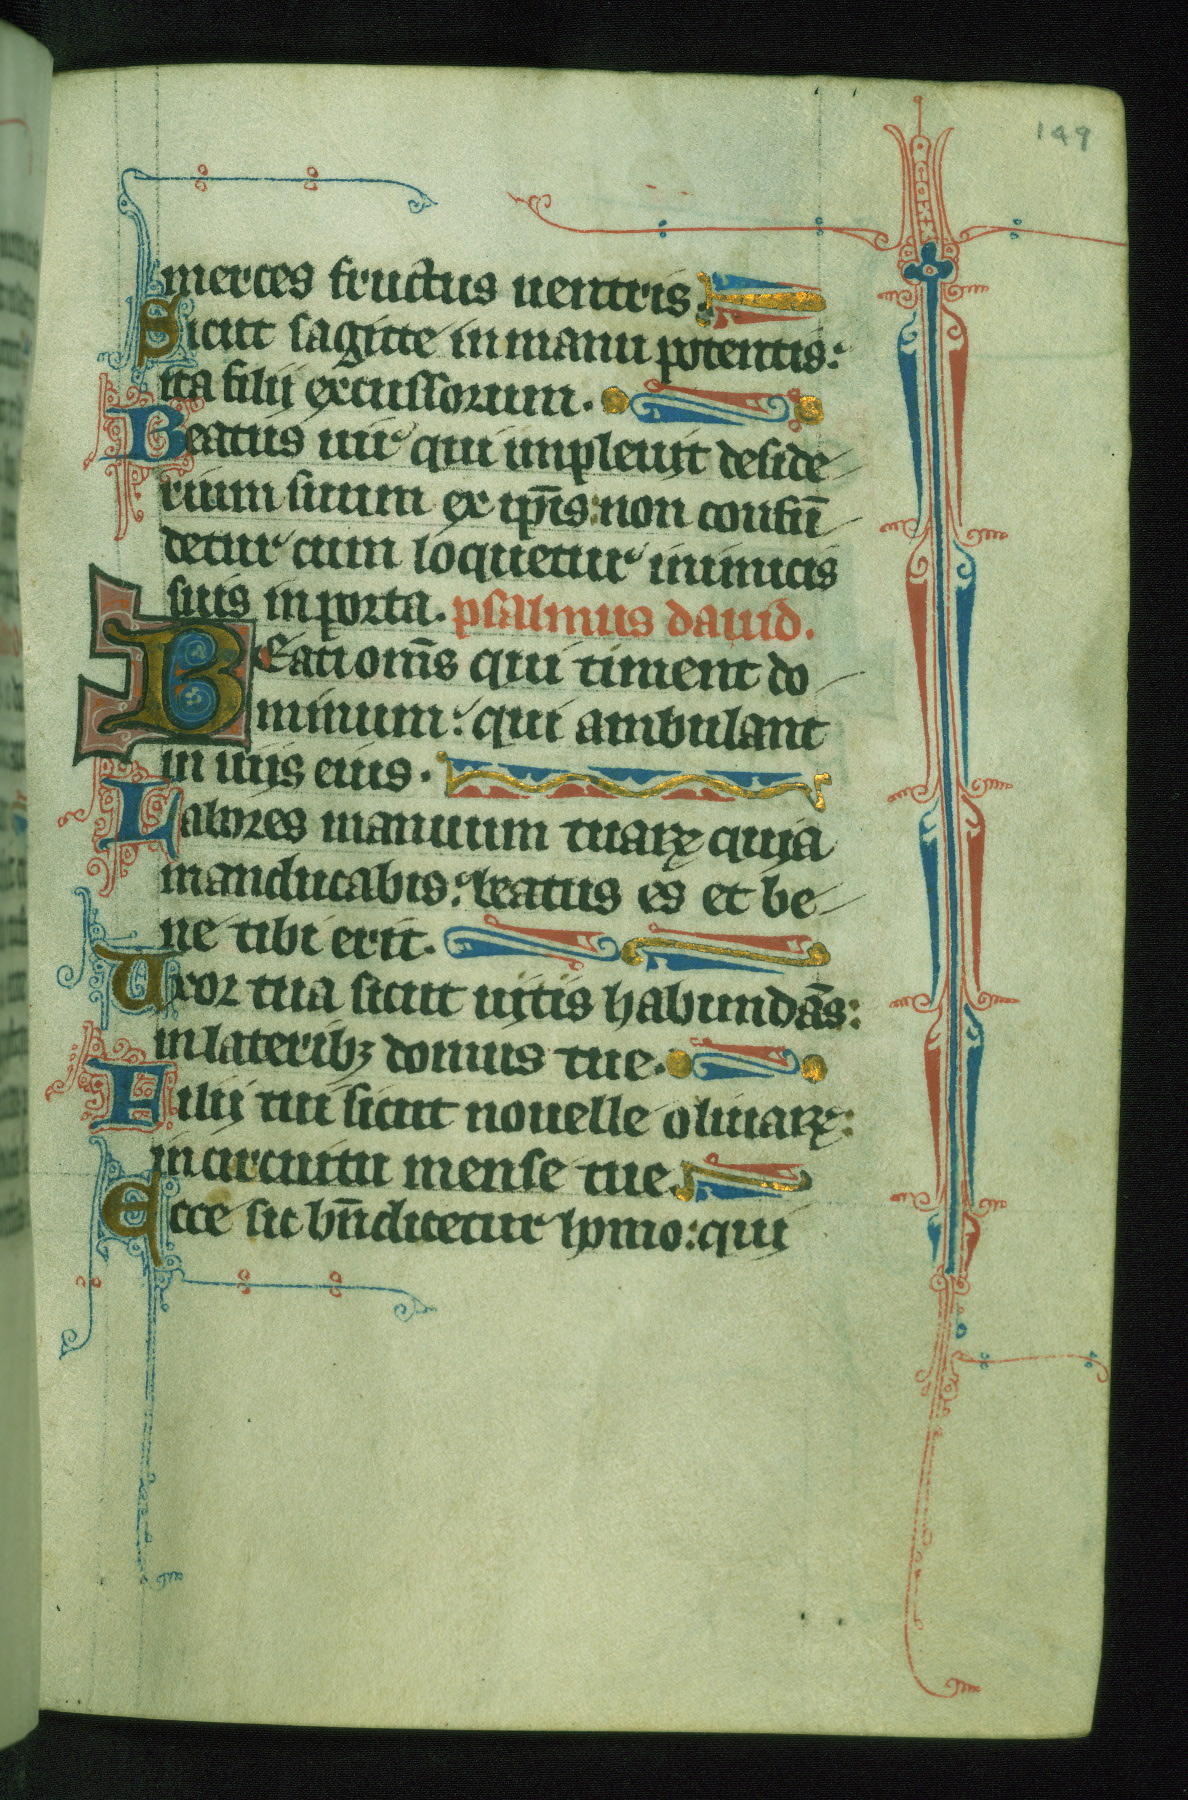 149
merces fructus uentris.
Sicut sagitte in manu potentis:
ita filii excussorum.
Beatus uir qui impleuit deside
rium suum ex ip̄is: non confū
detur cum loquetur inimicis
suis in porta. psalmus dauid.
Beati om̄s qui timent do
minum: qui ambulant
in uijs eius.
Labores manuum tuarꝝ quia
manducabis: beatus es et be
ne tibi erit.
Uxor tua sicut uitis habundās:
in lateribꝫ domus tue.
Filij tui sicut nouelle oliuarꝝ:
in circuitu mense tue.
Ecce sic bn̄dicetur homo: qui